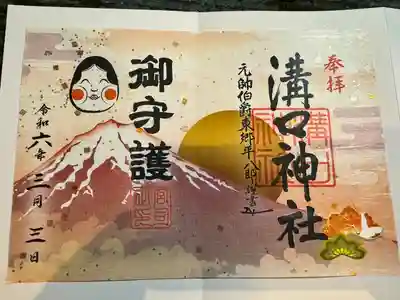 奉拝
溝口神社
元帥伯爵東郷平八郎
御守護
令和六年三月三日